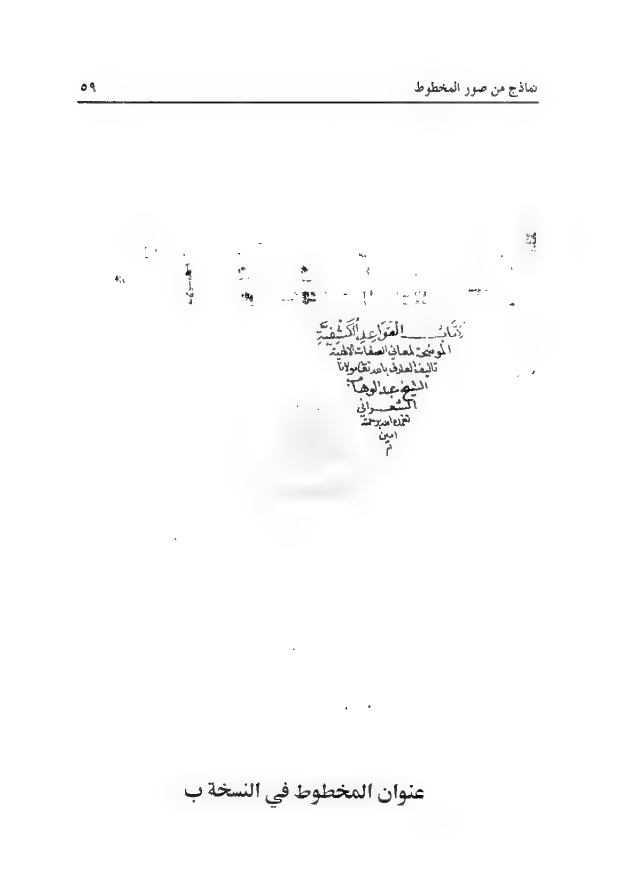 نماذج من صور المخطوط ٥٩
كتاب القواعد الكشفية
الموضحة لمعاني الصفات الالهية
تاليف العارف بالله تعالى مولانا
الشيخ عبد الوهاب
الشعراني
تغمده الله برحمته
امين
م
عنوان المخطوط في النسخة ب